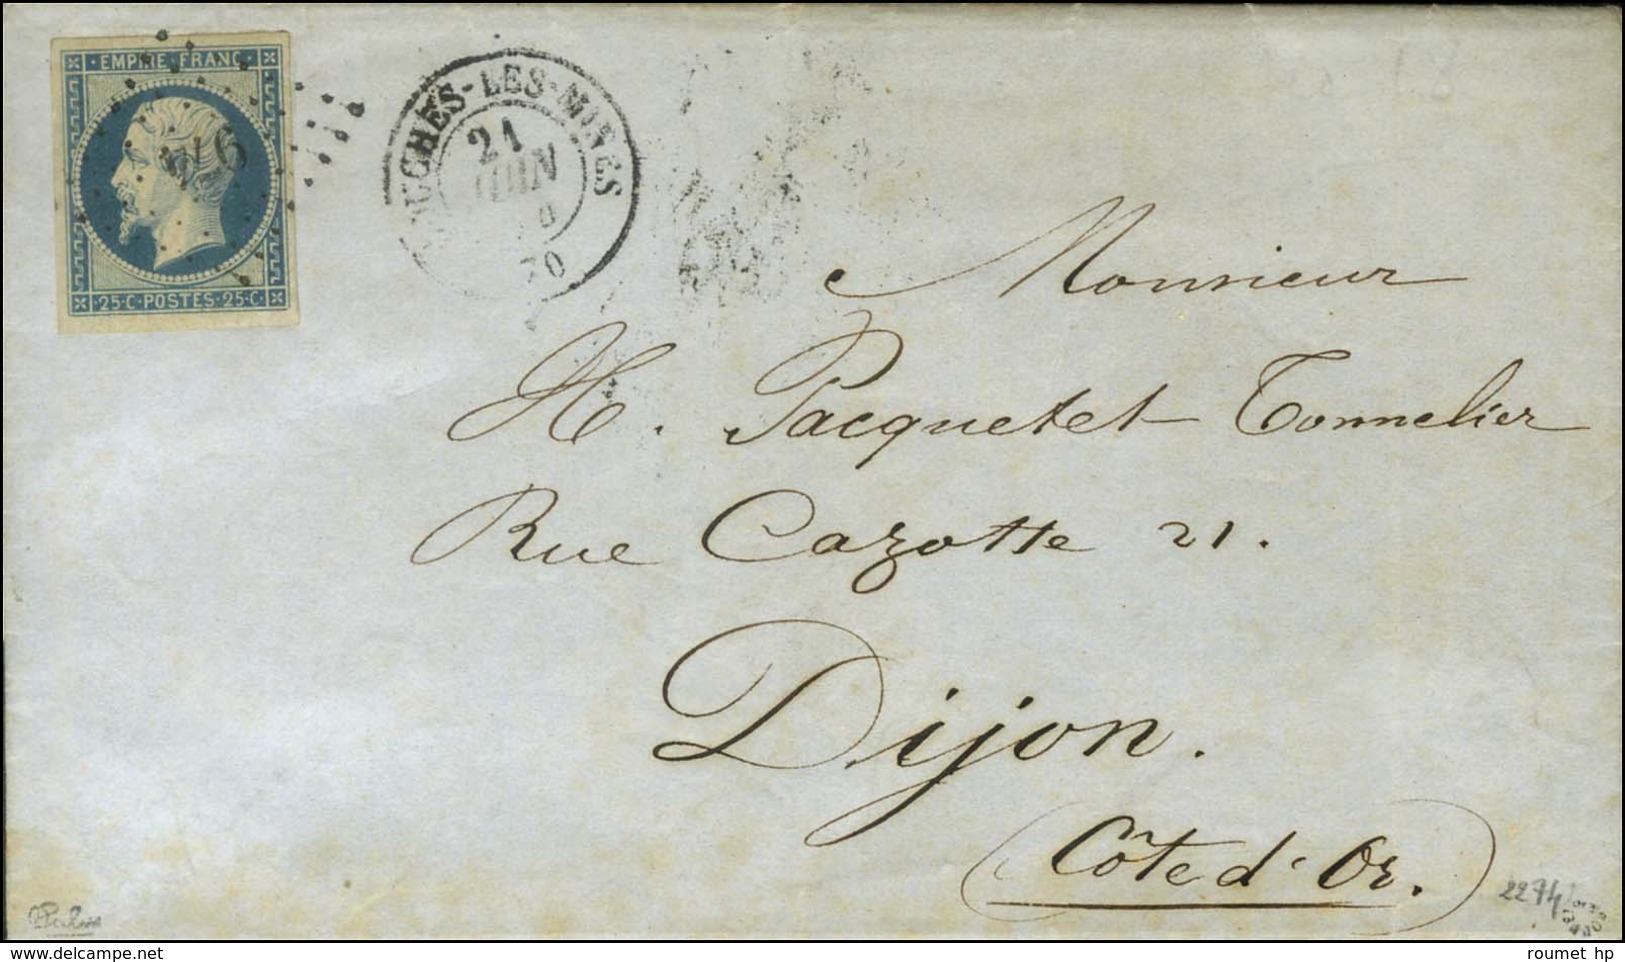 EMPIRE FRANC
25·C·POSTES·25·C
OUCHES-LES-MINES
21
JUIN
70
Monsieur
H. Pacquetet Tonnelier
Rue Cazotte 21.
Dijon.
Côte d'Or.
2274
www.delcampe.net
roumet hp